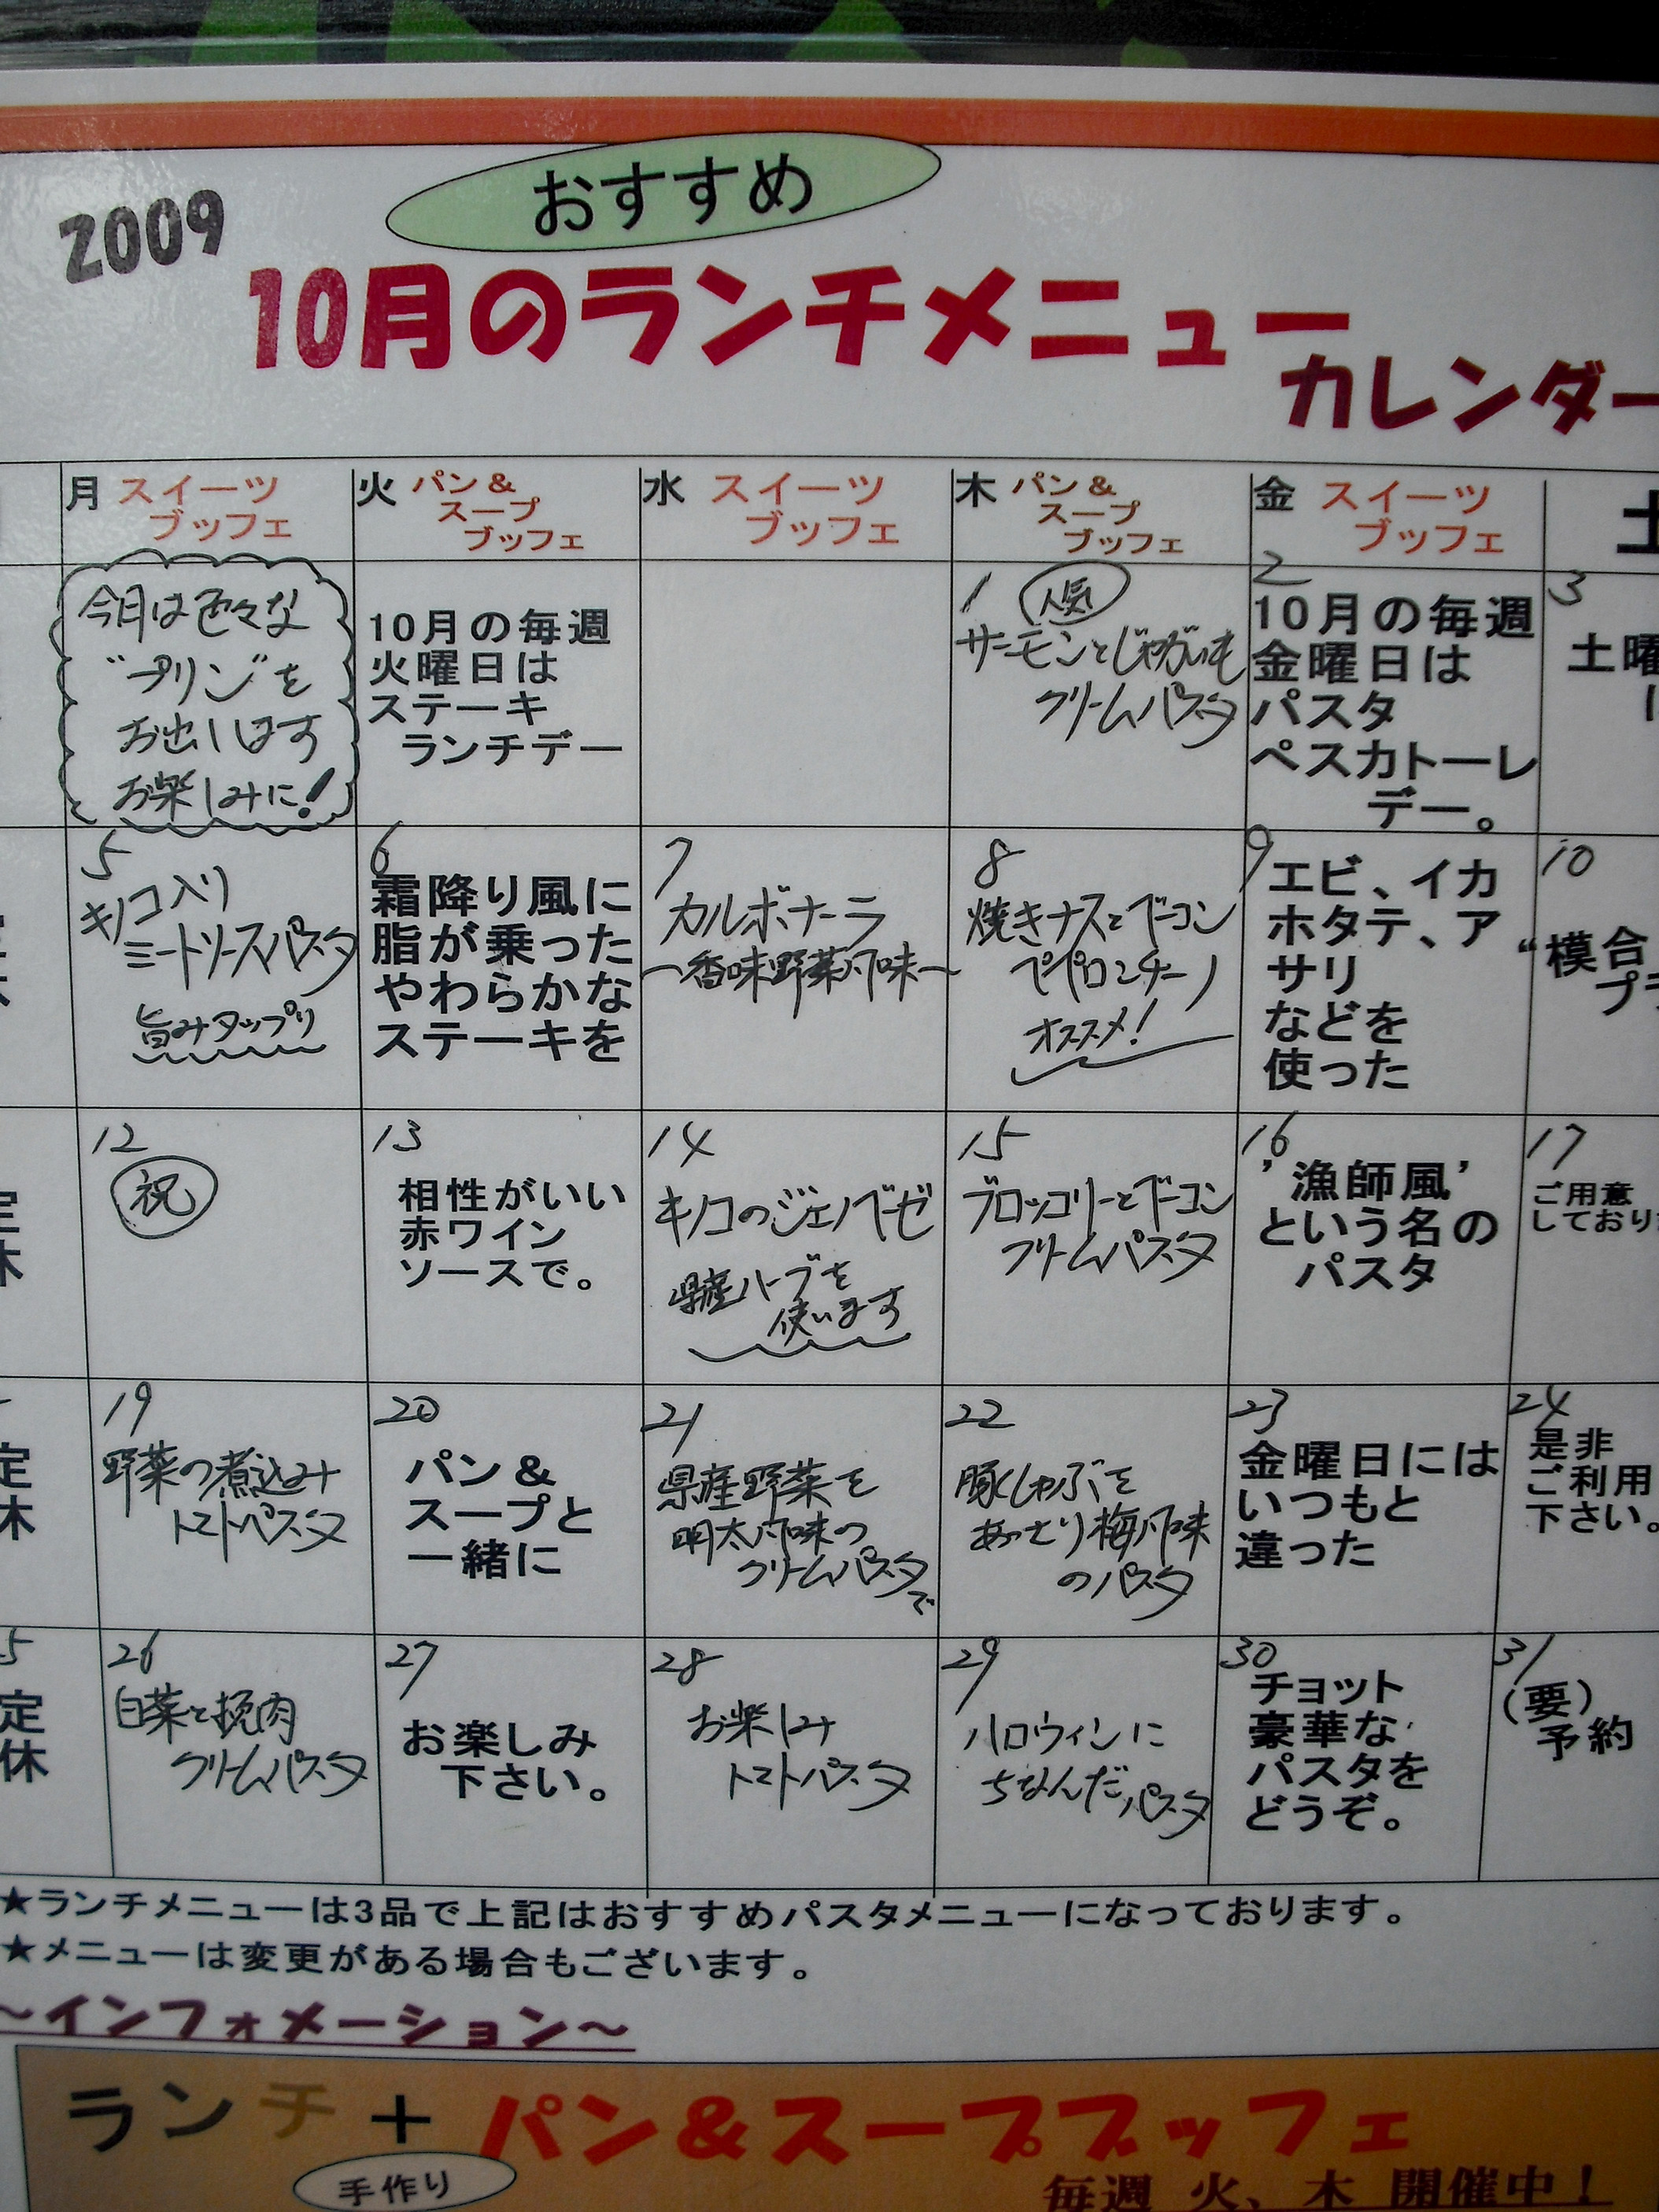 おすすめ
2009
10月のランチメニュー
カレンダー
月 スイーツ
ブッフェ
火 パン&
スープ
ブッフェ
水 スイーツ
ブッフェ
木 パン&
スープ
ブッフェ
金 スイーツ
ブッフェ
土
今月は色々な
"プリン"を
お出しします
お楽しみに!
10月の毎週
火曜日は
ステーキ
ランチデー
1 人気
サーモンとじゃがいも
クリームパスタ
2
10月の毎週
金曜日は
パスタ
ペスカトーレ
デー。
3
土曜
5
キノコ入り
ミートソースパスタ
旨みタップリ
6
霜降り風に
脂が乗った
やわらかな
ステーキを
7
カルボナーラ
~香味野菜風味~
8
焼きナスとベーコン
ペペロンチーノ
オススメ!
9
エビ、イカ
ホタテ、ア
サリ
などを
使った
10
"模合
プラ
定
休
12
祝
13
相性がいい
赤ワイン
ソースで。
14
キノコのジェノベーゼ
県産ハーブを
使います
15
ブロッコリーとベーコン
クリームパスタ
16
'漁師風'
という名の
パスタ
17
ご用意
しており
定
休
19
野菜の煮込み
トマトパスタ
20
パン&
スープと
一緒に
21
県産野菜を
明太風味の
クリームパスタで
22
豚しゃぶを
あっさり梅風味
のパスタ
23
金曜日には
いつもと
違った
24
是非
ご利用
下さい。
5
定
休
26
白菜と挽肉
クリームパスタ
27
お楽しみ
下さい。
28
お楽しみ
トマトパスタ
29
ハロウィンに
ちなんだパスタ
30
チョット
豪華な
パスタを
どうぞ。
31
(要)
予約
★ランチメニューは3品で上記はおすすめパスタメニューになっております。
★メニューは変更がある場合もございます。
~インフォメーション~
ランチ+パン&スープブッフェ
手作り
毎週 火、木 開催中!